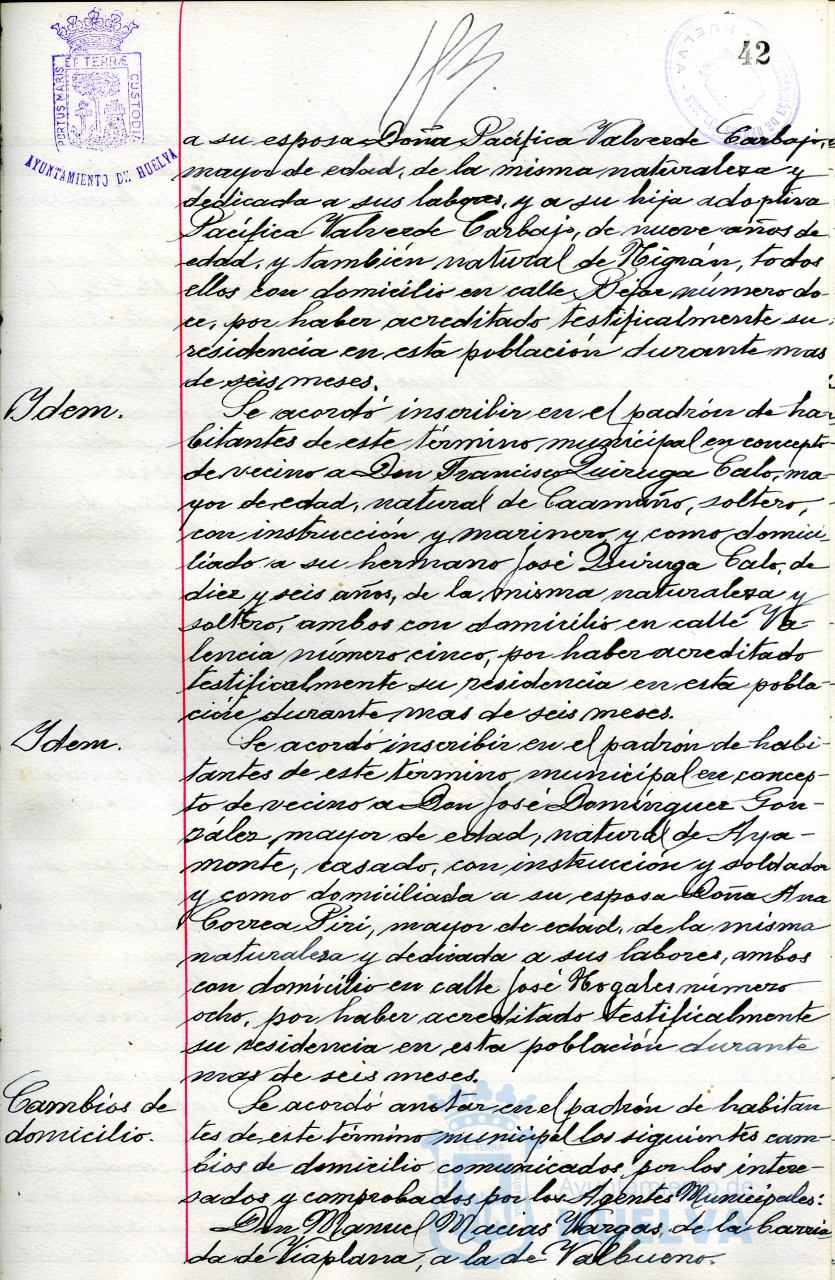 42
PORTUS MARIS ET TERRÆ CUSTODIA
AYUNTAMIENTO DE HUELVA
a su esposa Doña Pacífica Valverde Carbajo,
mayor de edad, de la misma naturaleza y
dedicada a sus labores, y a su hija adoptiva
Pacífica Valverde Carbajo, de nueve años de
edad, y también natural de Nigrán, todos
ellos con domicilio en calle Béjar número do-
ce, por haber acreditado testificalmente su
residencia en esta población durante mas
de seis meses.
Ydem.
Se acordó inscribir en el padrón de ha-
bitantes de este término municipal en concepto
de vecino a Don Francisco Quiruga Calo, ma-
yor de edad, natural de Caamaño, soltero,
con instrucción y marinero, y como domici-
liado a su hermano José Quiruga Calo, de
diez y seis años, de la misma naturaleza y
soltero, ambos con domicilio en calle Va-
lencia número cinco, por haber acreditado
testificalmente su residencia en esta pobla-
ción durante mas de seis meses.
Ydem.
Se acordó inscribir en el padrón de habi-
tantes de este término municipal en concep-
to de vecino a Don José Domínguez Gon-
zález, mayor de edad, natural de Aya-
monte, casado, con instrucción y soldador
y como domiciliada a su esposa Doña Ana
Correa Piri, mayor de edad, de la misma
naturaleza y dedicada a sus labores, ambos
con domicilio en calle José Nogales número
ocho, por haber acreditado testificalmente
su residencia en esta población durante
mas de seis meses.
Cambios de
domicilio.
Se acordó anotar en el padrón de habitan
tes de este término municipal los siguientes cam-
bios de domicilio comunicados por los intere-
sados y comprobados por los Agentes Municipales:
Don Manuel Macias Vargas, de la barria
da de Viaplana, a la de Valbueno.
Ayuntamiento de
HUELVA